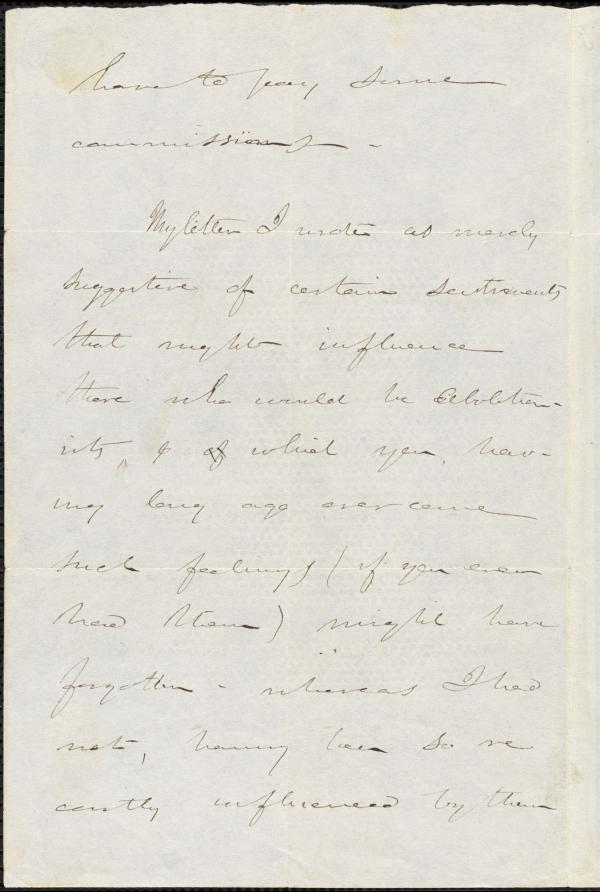 have to pay some
commissions -
My letter I wrote as merely
suggestive of certain sentiments
that might influence
those who would be abolition-
ists, & of which you, hav-
ing long ago overcome
such feelings (if you ever
had them) might have
forgotten - whereas I had
not, having been so re
cently influenced by them